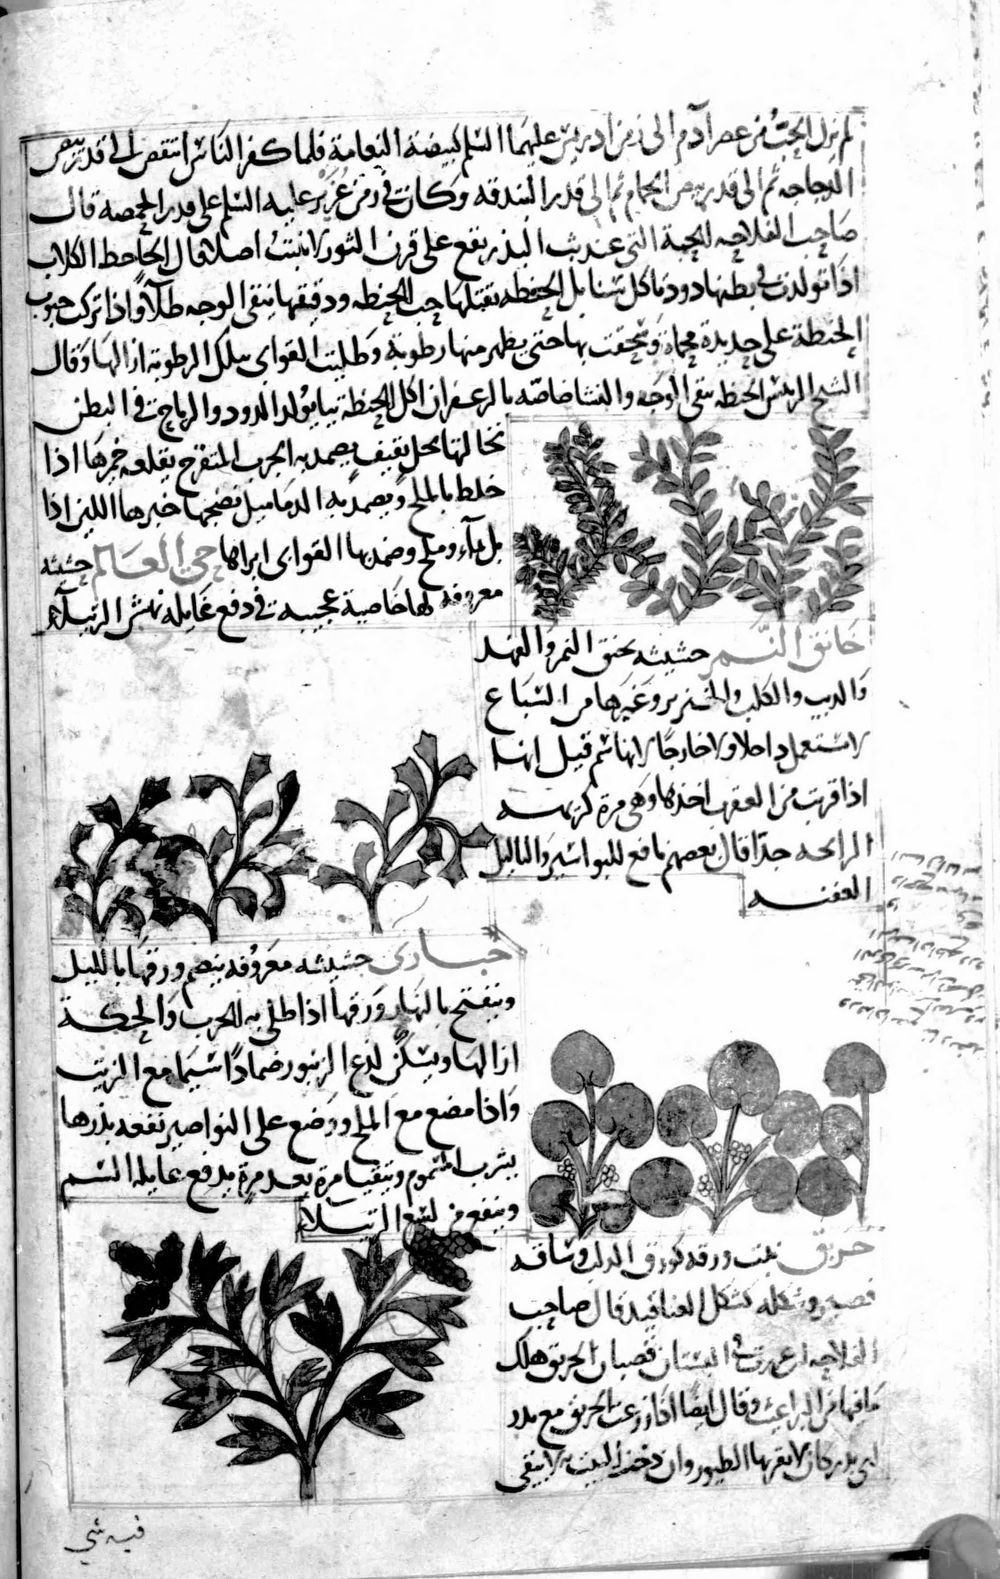 لم يزل الحبّ من عصر آدم الى زمن ادريس عليهما السّلم كبيضة النعامة فلما كفر الناس انتقص الى قدر بيض
الدجاجه ثم الى قدر بيض الحمام ثم الى قدر البندقه وكانت في زمن عزير عليه السّلم على قدر الحمصه قال
صاحب الفلاحه الحبة التي عند بث البذر يقع على قرن الثور لا تنبت اصلا قال الجاحظ الكلاب
اذا تولدت في بطنها دود تاكل سنابل الحنطه يقتلها حب الحنطه ودقيقها ينقى الوجه طلآً واذا تركت حبوب
الحنطة على حديدة محماة حتى يظهر منها رطوبة وطليت القوابى بتلك الرطوبه ازالها وقال
الشيخ الرئيس الحنطه ينقى الوجه والنشا خاصّه بالزعفران اكل الحنطة نيا يولد الدود والرياح في البطن
نخالتها بخل ثقيف يضمد به الجرب المتقرح يقلعه خميرها اذا
خلط بالملح ويضمد به الدماميل نضجها خبزها اللين اذا
بل بمآء وملح وضمد بها القوابى ابراها حى العالم حشيشه
معروفه لها خاصية عجيبه في دفع غايله نهش الرتيلآء
خانق النمر حشيشه يخنق النمر والفهد
والذيب والكلب والخنزير وغيرها من السّباع
لا يستعمل داخلا ولا خارجًا لانها سم قيل انها
اذا قربت من العقرب اخذها وهى مرة كريهه
الرايحه جدًا قال بعضهم نافع للبواسير والثاليل
العفنه
خبازى حشيشه معروفه ينضم ورقها بالليل
وينفتح بالنهار ورقها اذا طلى به الجرب والحكة
ازالها ويسكّن لذع الزنبور ضمادًا سيّما مع الزيت
واذا مضغ مع الملح ووضع على النواصير نفعه بذرها
يشرب المسموم ويتقيا مرة بعد مرة يدفع غايله السّم
وينفع من لسع الرتيلا
خربق نبت ورقه كورق الدلب وساقه
قصير وشكله كشكل العناقيد قال صاحب
الفلاحه في البستان قضبان الخربق هلك
ما فيها من البراغيث وقال ايضًا اذا زرعت الخربق مع بذر
لا يقربها الطيور وان دخنت البيت به لا يبقى
فيه شي